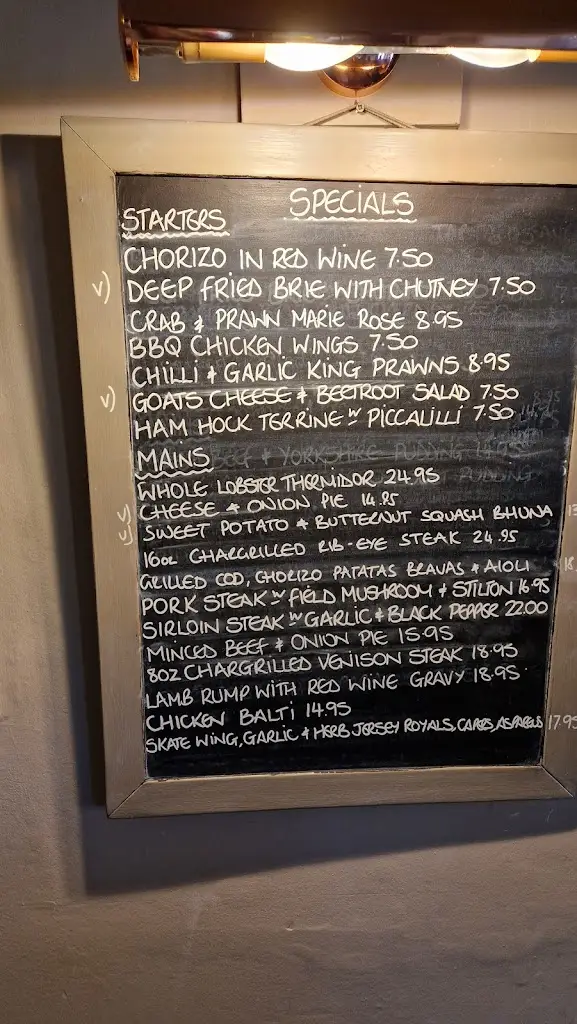 SPECIALS
STARTERS
CHORIZO IN RED WINE 7.50
V) DEEP FRIED BRIE WITH CHUTNEY 7.50
CRAB & PRAWN MARIE ROSE 8.95
BBQ CHICKEN WINGS 7.50
CHILLI & GARLIC KING PRAWNS 8.95
V) GOATS CHEESE & BEETROOT SALAD 7.50
HAM HOCK TERRINE W PICCALILLI 7.50
MAINS
WHOLE LOBSTER THERMIDOR 24.95
V) CHEESE & ONION PIE 14.95
V) SWEET POTATO & BUTTERNUT SQUASH BHUNA
16oz CHARGRILLED RIB-EYE STEAK 24.95
GRILLED COD, CHORIZO PATATAS BRAVAS & AIOLI
PORK STEAK W FIELD MUSHROOM & STILTON 16.95
SIRLOIN STEAK W GARLIC & BLACK PEPPER 22.00
MINCED BEEF & ONION PIE 15.95
8OZ CHARGRILLED VENISON STEAK 18.95
LAMB RUMP WITH RED WINE GRAVY 18.95
CHICKEN BALTI 14.95
SKATE WING, GARLIC & HERB JERSEY ROYALS, CAPERS, 17.95